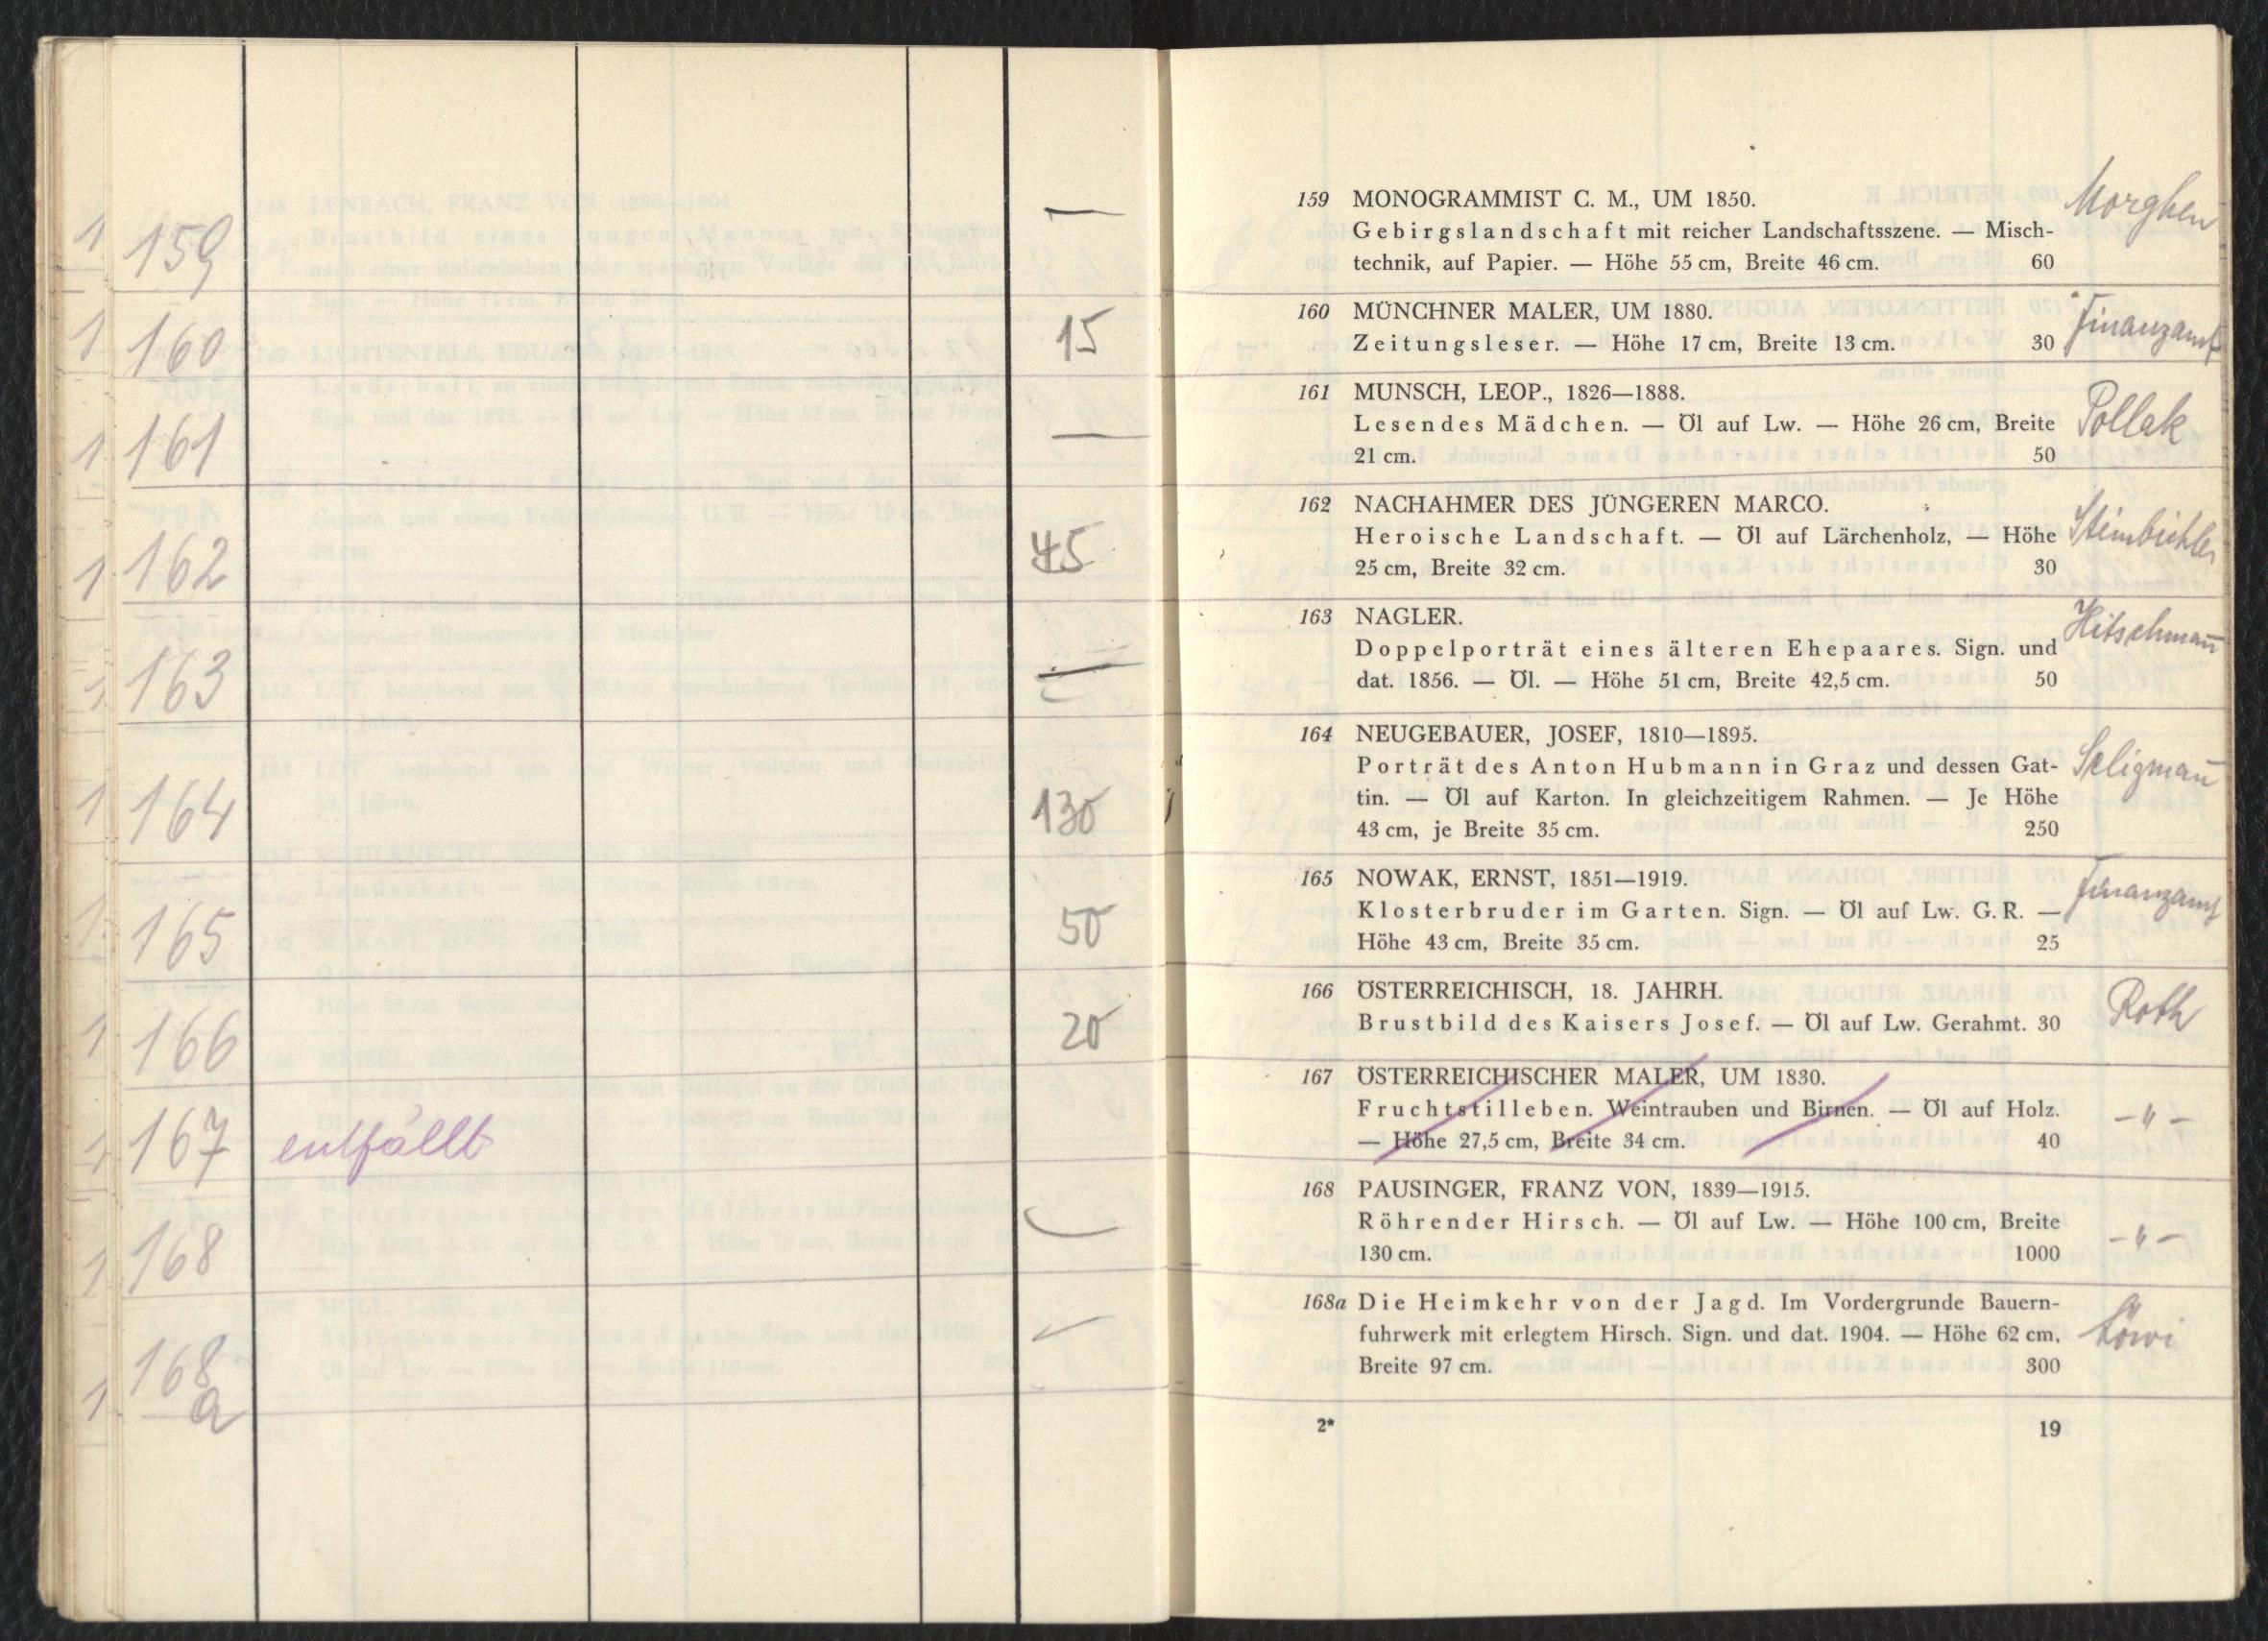 159
—
160
15
161
—
162
45
163
—
164
130
165
50
166
20
167 entfällt
168
168
a
159 MONOGRAMMIST C. M., UM 1850.
Morghen
Gebirgslandschaft mit reicher Landschaftsszene. — Misch-
technik, auf Papier. — Höhe 55 cm, Breite 46 cm. 60
160 MÜNCHNER MALER, UM 1880.
Finanzamt
Zeitungsleser. — Höhe 17 cm, Breite 13 cm. 30
161 MUNSCH, LEOP., 1826—1888.
Pollak
Lesendes Mädchen. — Öl auf Lw. — Höhe 26 cm, Breite
21 cm. 50
162 NACHAHMER DES JÜNGEREN MARCO.
Heroische Landschaft. — Öl auf Lärchenholz, — Höhe
25 cm, Breite 32 cm. 30
163 NAGLER.
Hitschmann
Doppelporträt eines älteren Ehepaares. Sign. und
dat. 1856. — Öl. — Höhe 51 cm, Breite 42,5 cm. 50
164 NEUGEBAUER, JOSEF, 1810—1895.
Seligmann
Porträt des Anton Hubmann in Graz und dessen Gat-
tin. — Öl auf Karton. In gleichzeitigem Rahmen. — Je Höhe
43 cm, je Breite 35 cm. 250
165 NOWAK, ERNST, 1851—1919.
Finanzamt
Klosterbruder im Garten. Sign. — Öl auf Lw. G. R. —
Höhe 43 cm, Breite 35 cm. 25
166 ÖSTERREICHISCH, 18. JAHRH.
Roth
Brustbild des Kaisers Josef. — Öl auf Lw. Gerahmt. 30
167 ÖSTERREICHISCHER MALER, UM 1830.
Fruchtstilleben. Weintrauben und Birnen. — Öl auf Holz.
— " —
— Höhe 27,5 cm, Breite 34 cm. 40
168 PAUSINGER, FRANZ VON, 1839—1915.
Röhrender Hirsch. — Öl auf Lw. — Höhe 100 cm, Breite
— " —
130 cm. 1000
168a Die Heimkehr von der Jagd. Im Vordergrunde Bauern-
Löwi
fuhrwerk mit erlegtem Hirsch. Sign. und dat. 1904. — Höhe 62 cm,
Breite 97 cm. 300
2* 19